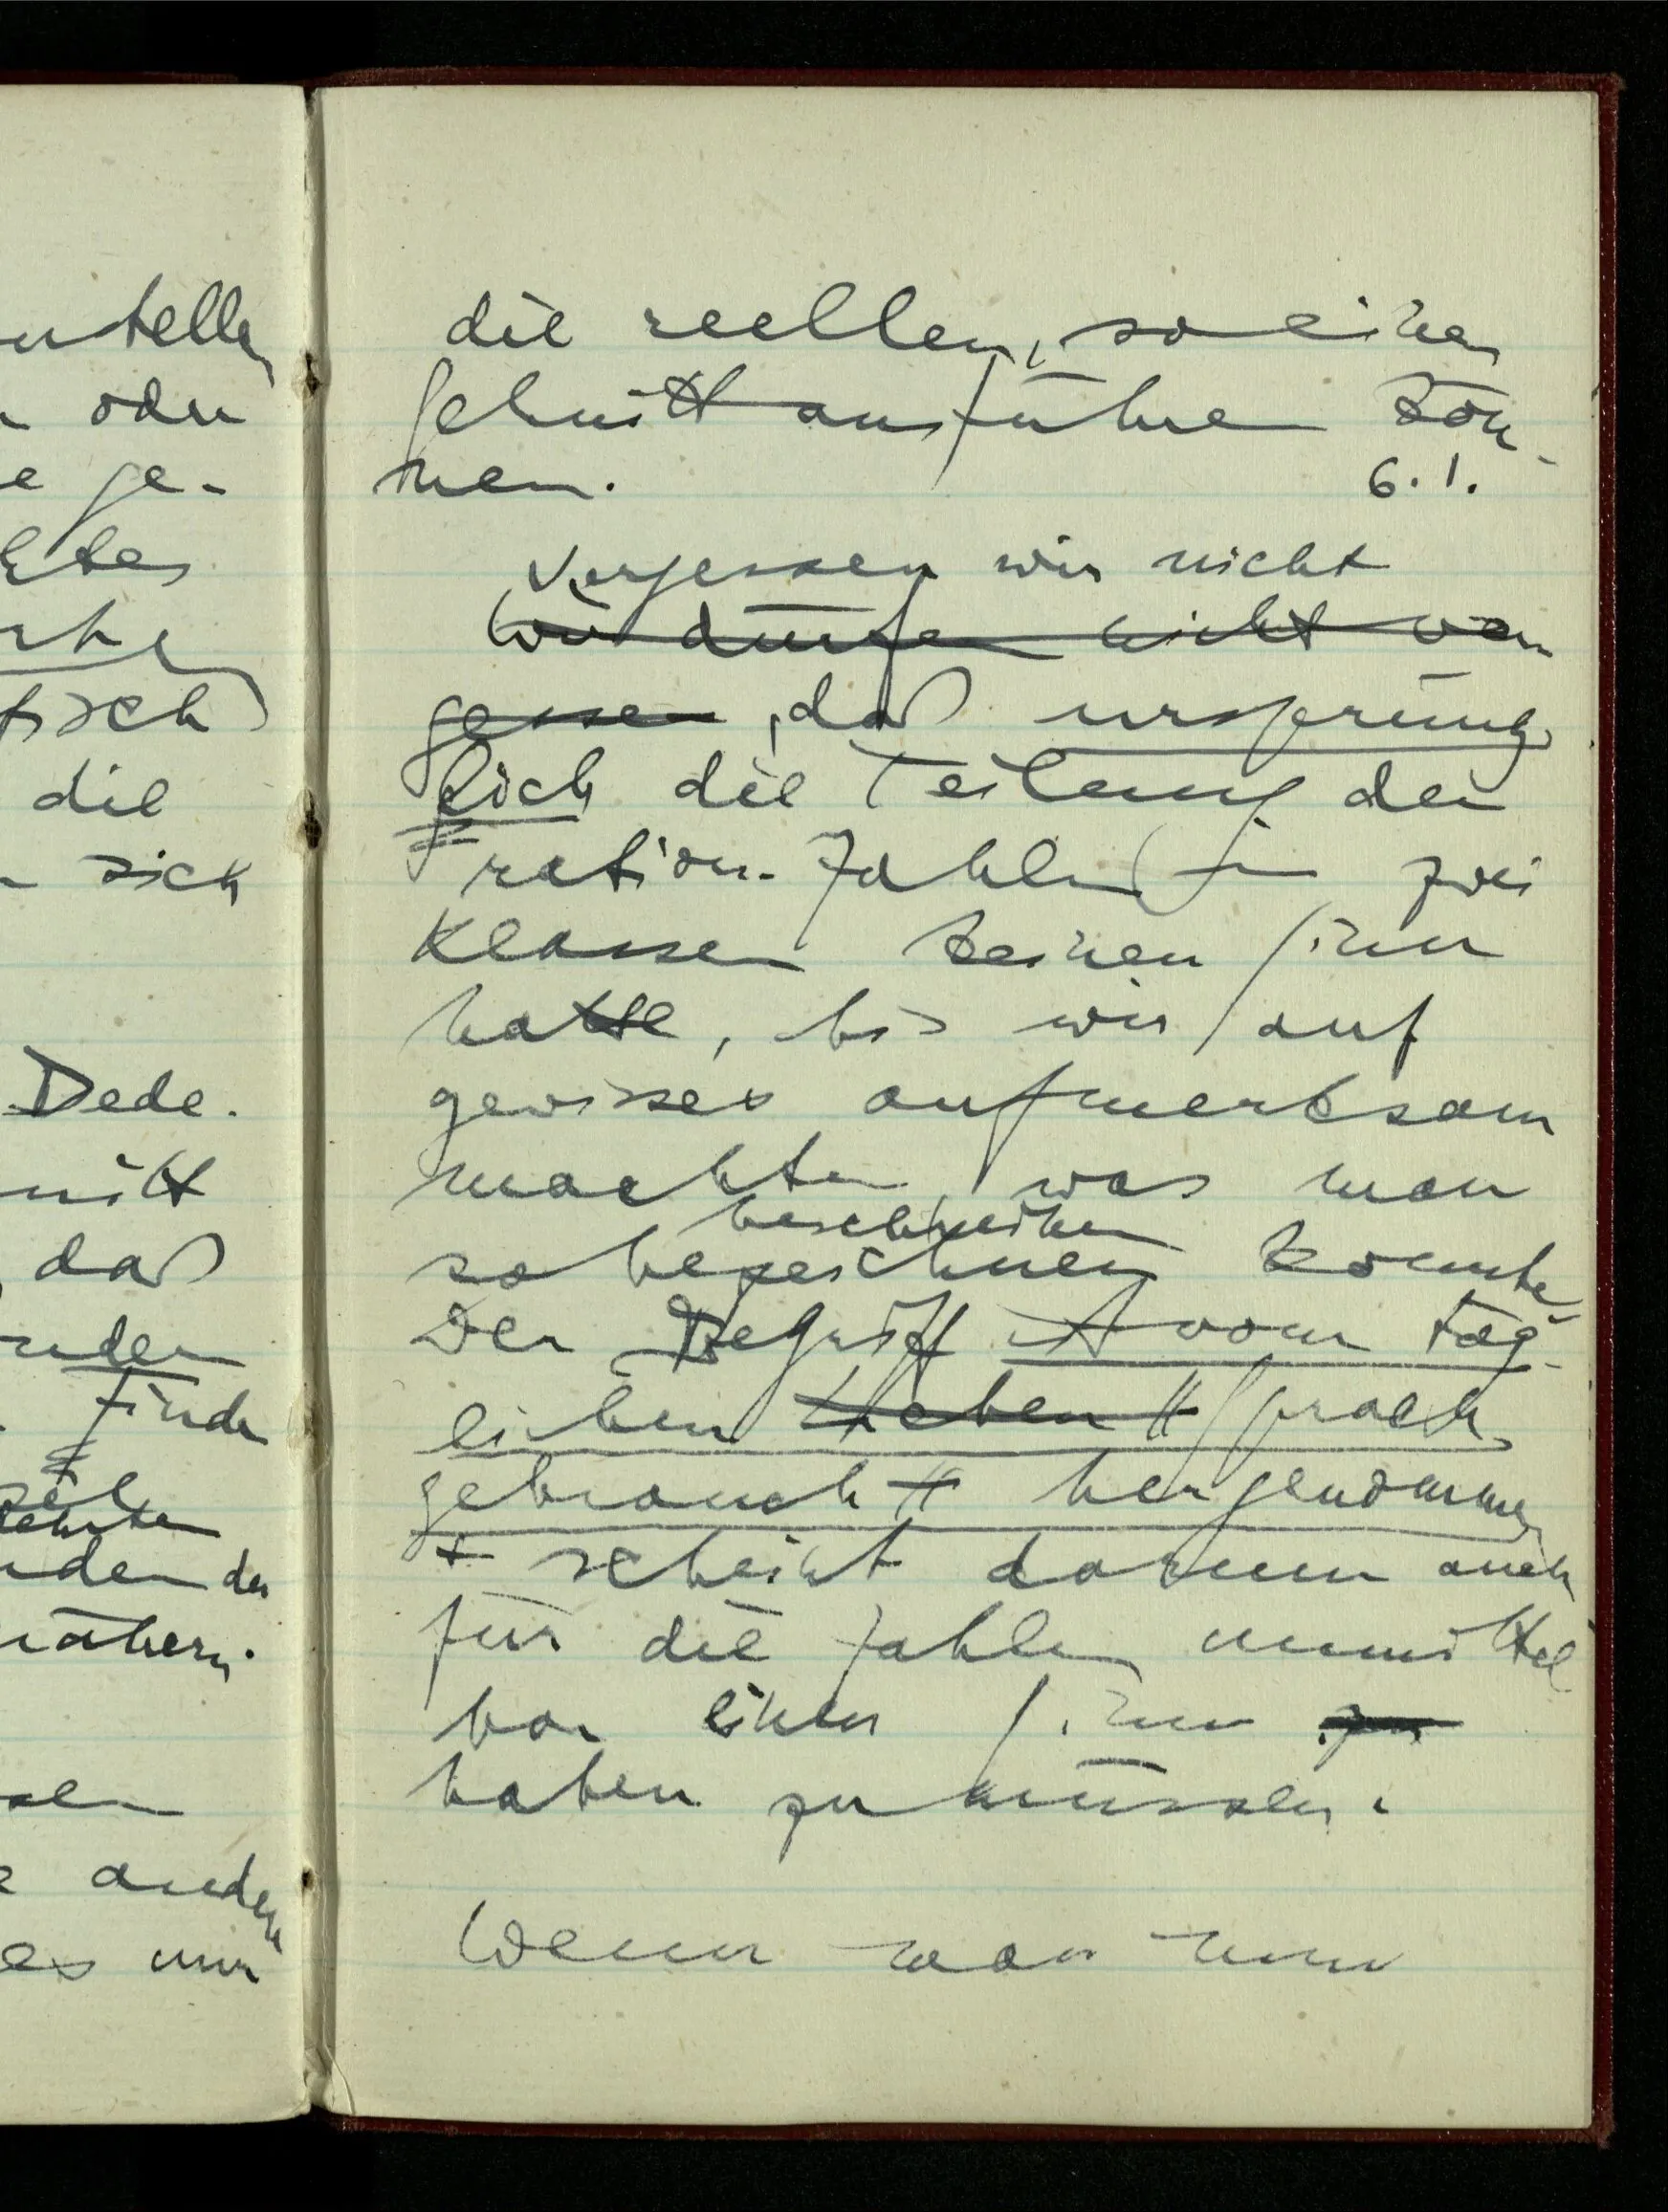 ntellen
oder
e ge-
htes
rhe
isch
die
sich
Dede-
nitt
daß
nden
finde
den der
nähern.
sen
andern
es nur
die reellen, so einen
Schnitt ausführen kön-
nen.
6.1.
Vergessen wir nicht
Wir dürfen nicht ver-
gessen, daß ursprüng-
lich die Teilung der
ration. Zahlen in zwei
Klassen keinen Sinn
hatte, bis wir auf
gewisses aufmerksam
machten, was man
beschreiben
so bezeichnen konnte
Der Begriff ist vom täg-
lichen Leben Sprach-
gebrauch hergenommen
& scheint darum auch
für die Zahlen unmittel
bar einen Sinn zu
haben zu müssen.
Wenn man nun